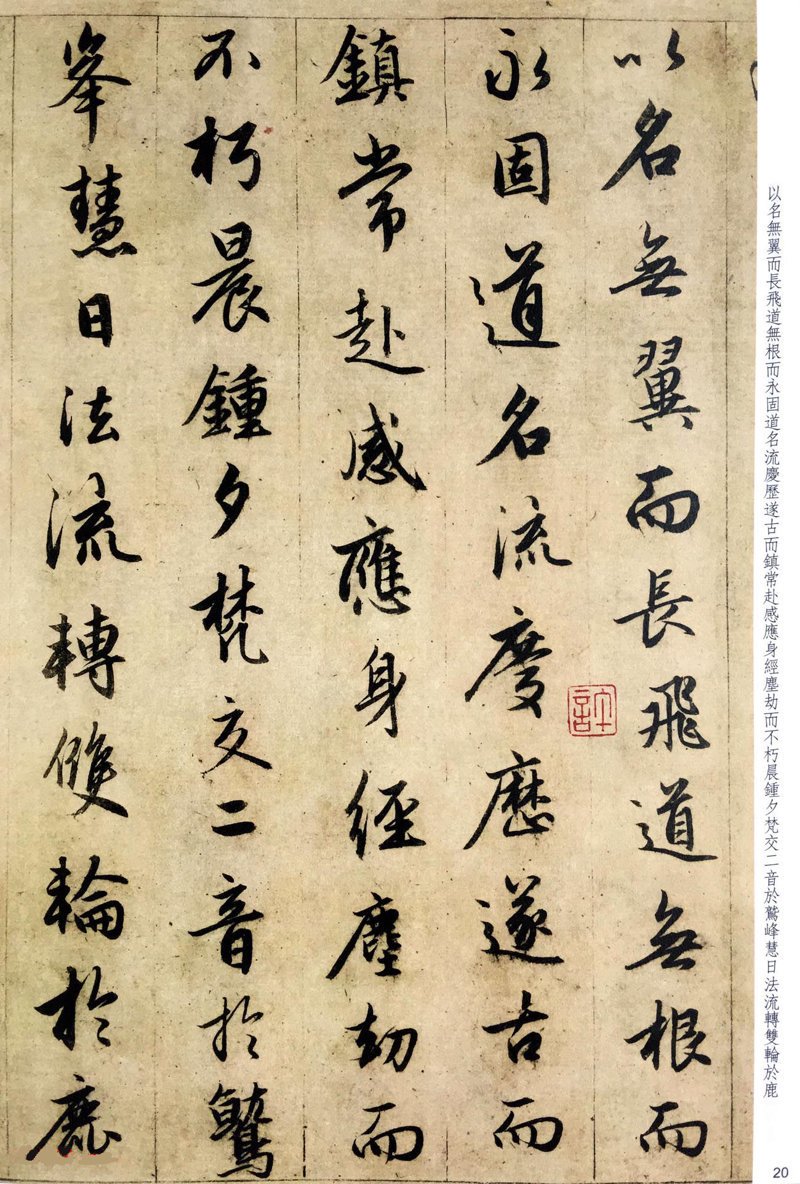 以名無翼而長飛道無根而
永固道名流慶歷遂古而
鎮常赴感應身經塵劫而
不朽晨鍾夕梵交二音於鷲
峯慧日法流轉雙輪於鹿
許
以名無翼而長飛道無根而永固道名流慶歷遂古而鎮常赴感應身經塵劫而不朽晨鍾夕梵交二音於鷲峰慧日法流轉雙輪於鹿
20